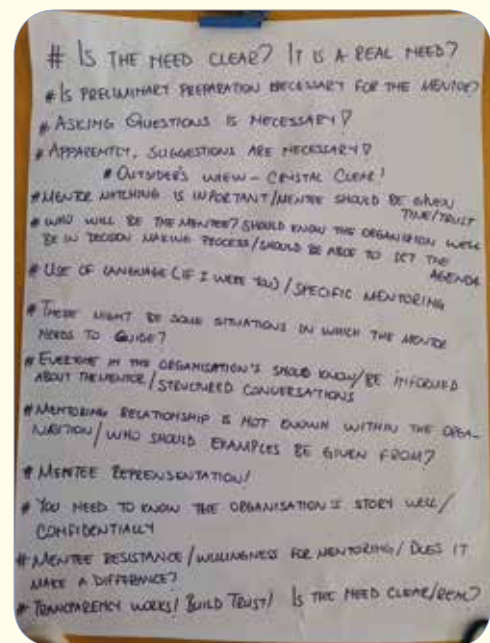 # IS THE NEED CLEAR? IT IS A REAL NEED?
# IS PRELIMINARY PREPARATION NECESSARY FOR THE MENTOR?
# ASKING QUESTIONS IS NECESSARY?
# APPARENTLY, SUGGESTIONS ARE NECESSARY?
# OUTSIDER'S VIEW - CRYSTAL CLEAR!
# MENTOR MATCHING IS IMPORTANT/MENTEE SHOULD BE GIVEN
TIME/TRUST
# WHO WILL BE THE MENTEE? SHOULD KNOW THE ORGANISATION WELL
BE IN DECISION MAKING PROCESS/SHOULD BE ABLE TO SET THE
AGENDA
# USE OF LANGUAGE (IF I WERE YOU) / SPECIFIC MENTORING
# THERE MIGHT BE SOME SITUATIONS IN WHICH THE MENTOR
NEEDS TO GUIDE?
# EVERYONE IN THE ORGANISATION'S SHOULD KNOW/BE INFORMED
ABOUT THE MENTOR/STRUCTURED CONVERSATIONS
# MENTORING RELATIONSHIP IS NOT KNOWN WITHIN THE ORGA-
NISATION/WHO SHOULD EXAMPLES BE GIVEN FROM?
# MENTEE REPRENSENTATION!
# YOU NEED TO KNOW THE ORGANISATION'S STORY WELL/
CONFIDENTIALLY
# MENTEE RESISTANCE/WILLINGNESS FOR MENTORING/DOES IT
MAKE A DIFFERANCE?
# TRANCPARENCY WORKS! BUILD TRUST! IS THE NEED CLEAR/REAL?